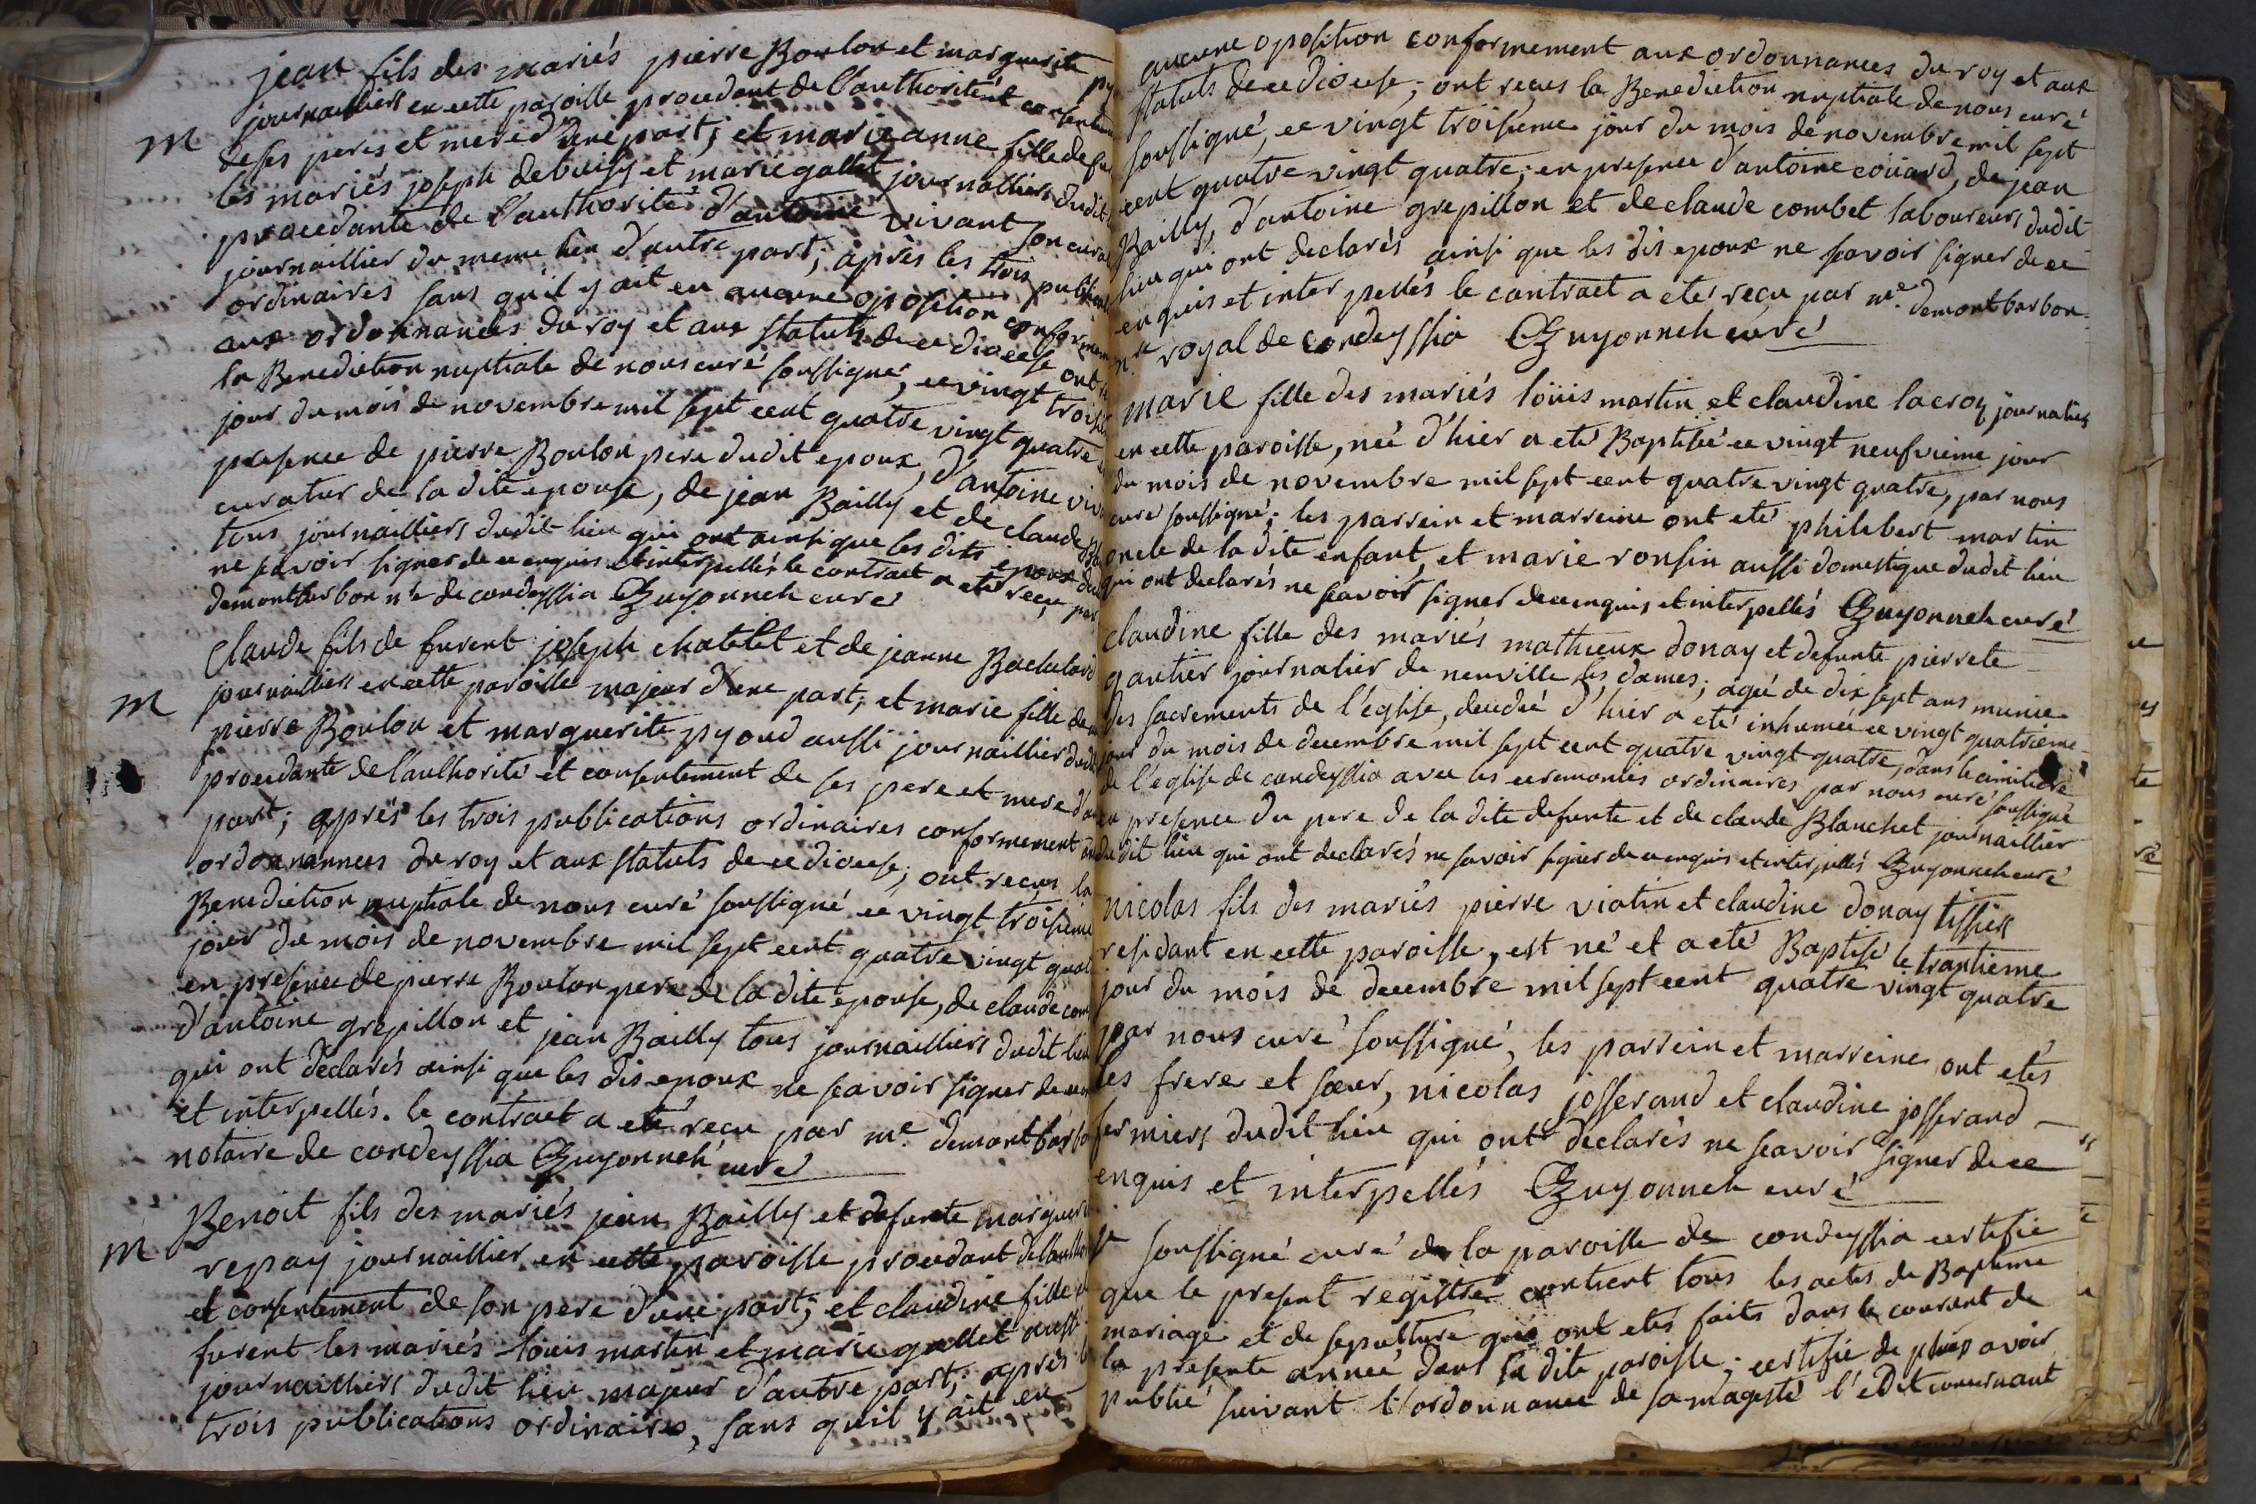 jean fils des mariés pierre Boulon et marguerite py
journailliers en cette paroisse procedant de l'authorité et consentem
M
de ses peres et mere d'une part; et marie anne fille de fu
les mariés joseph debuisy et marie gallet journalliers dudit
procedante de l'authorité d'antoine vivant son cura
journaillier du meme lieu d'autre part; après les trois publi
ordinaires sans qu'il y ait eu aucune oposition conformem
aux ordonnances du roy et aux statuts de ce diocese ont
la Benediction nuptiale de nous curé soussigné, ce vingt troisi
jour du mois de novembre mil sept cent quatre vingt quatre
presence de pierre Boulon pere dudit epoux, d'antoine viv
curatur de la dite epouse, de jean Bailly et de claude
tous journailliers dudit lieu qui ont ainsi que les dits epoux
ne scavoir signer de ce enquis et interpellés le contract a eté recu par
demontbarbon n.re de condeyssia CGuyonneh curé
Claude fils de furent joseph chatelet et de jeanne Bachelard
journailliers en cette paroisse majeur d'une part; et marie fille de
M
pierre Boulon et marguerite pyoud aussi journaillier dudit
procedante de l'authorité et consentement de ses pere et mere d'au
part; après les trois publications ordinaires conformement au
ordonnannces du roy et aux statuts de ce diocese; ont reçus la
Benediction nuptiale de nous curé soussigné ce vingt troisieme
jour du mois de novembre mil sept cent quatre vingt quat
en presence de pierre Boulon pere de la dite epouse, de claude com
d'antoine grepillon et jean Bailly tous journailliers dudit lieu
qui ont declarés ainsi que les dis epoux ne scavoir signer de ce en
et interpellés. le contract a eté recu par m.e demontbarbo
notaire de condeyssia CGuyonneh curé
Benoit fils des mariés jean Bailly et defunte marguer
M
repay journaillier en cette paroisse procedant de l'auth
et consentement de son pere d'une part; et claudine fille
furent les mariés louis martin et marie gallet aussi
journailliers dudit lieu majeur d'autre part; après
trois publications ordinaires, sans quil y ait eu
aucune oposition conformement aux ordonnances du roy et aux
statuts de ce diocese; ont reçus la Benediction nuptiale de nous curé
soussigné, ce vingt troisieme jour du mois de novembre mil sept
cent quatre vingt quatre; en presence d'antoine coüard, de jean
Bailly, d'antoine grepillon et de claude combet laboureurs dudit
lieu qui ont declarés ainsi que les dis epoux ne scavoir signer de ce
enquis et interpellés le contract a eté reçu par m.e demontbarbon
n.re royal de condeyssia CGuyonneh curé
marie fille des mariés loüis martin et claudine lacroy journaliers
en cette paroisse, née d'hier a eté Baptisée ce vingt neufvieme jour
du mois de novembre mil sept cent quatre vingt quatre, par nous
curé soussigné; les parrein et marreine ont eté philibert martin
oncle de la dite enfant, et marie ronsin aussi domestique dudit lieu
qui ont declarés ne scavoir signer de ce enquis et interpellés CGuyonneh curé
claudine fille des mariés mathieux donay et defunte pierrete
gautier journalier de neuville les dames; agée de dix sept ans munie
des sacrements de l'église, decedée d'hier a eté inhumée ce vingt quatrieme
jour du mois de decembre mil sept cent quatre vingt quatre, dans le cimitiere
de l'eglise de condeyssia avec les ceremonies ordinaires par nous curé soussigné
en presence du pere de la dite defunte et de claude Blanchet journaillier
dudit lieu qui ont declarés ne savoir signer de ce enquis et interpellés CGuyonneh curé
nicolas fils des mariés pierre viatin et claudine donay tissier
residant en cette paroisse, est né et a eté Baptisé le trantieme
jour du mois de decembre mil sept cent quatre vingt quatre
par nous curé soussigné, les parrein et marreine ont etés
les frere et sœur, nicolas josserand et claudine josserand
fermiers dudit lieu qui ont declarés ne scavoir signer de ce
enquis et interpellés CGuyonneh curé
je soussigné curé de la paroisse de condeyssia certifie
que le present registre contient tous les actes de Bapteme
mariage et de sepulture qui ont etés faits dans le courant de
la presente année dans la dite paroisse; certifie de plus avoir
publié suivant l'ordonnance de sa magesté l'edit concernant